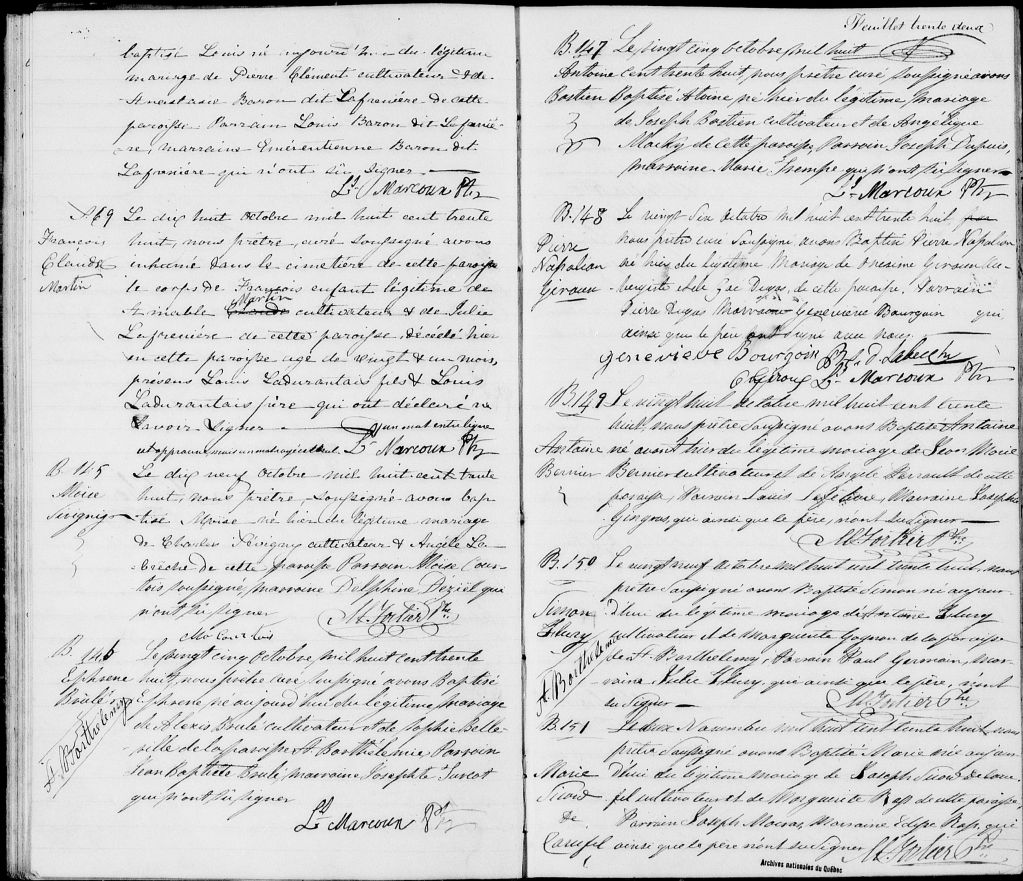 baptisé Louis né aujourd'hui du légitime
mariage de Pierre Clément cultivateur & de
Anastasie Baron dit Lafrenière de cette
paroisse Parrain Louis Baron dit Lafreniè-
re, marraine Emérentienne Baron dit
Lafrenière qui n'ont su signer
Ls. Marcoux Ptre
S 69
François
Claude
Martin
Le dix huit Octobre mil huit cent trente
huit, nous prêtre, curé soussigné avons
inhumé dans le cimetière de cette paroisse
le corps de François enfant légitime de
Amable Martin cultivateur & de Julie
Lafrenière de cette paroisse, décédé hier
en cette paroisse agé de vingt & un mois,
présens Louis Ladurantais fils & Louis
Ladurantais père qui ont déclaré ne
savoir signer un mot entreligne
est approuvé, mais un mot rayé est nul. Ls Marcoux Ptre
B. 145
Moise
Sévigny
Le dix neuf Octobre mil huit cent trente
huit, nous prêtre, soussigné avons bap-
tisé Moise né hier du légitime mariage
de Charles Sévigny cultivateur & Angèle La-
brèche de cette paroisse Parrain Moise Cour-
tois, soussigné, marraine Delphine Deziel qui
n'ont su signer
M. Fortier Ptre
Courtois
B. 146
Ephrene
Boulé
St. Barthelemy
Le vingt cinq Octobre, mil huit cent trente
huit, nous prêtre curé soussigné avons Baptisé
Ephrene né aujourd'hui du légitime mariage
de Alexis Boulé cultivateur et de Sophie Belle-
ville de la paroisse St. Barthelemie Parrain
Jean Baptiste Boulé, marraine Josephte Turcot
qui n'ont su signer
Ls. Marcoux Ptre
Feuillet trente deux
B. 147
Antoine
Bastien
Le vingt cinq Octobre, mil huit
cent trente huit, nous prêtre curé soussigné avons
Baptisé Atoine né hier du légitime mariage
de Joseph Bastien cultivateur et de Angélique
Macky de cette paroisse, Parrain Joseph Dupuis,
marraine Marie Trempe qui n'ont su signer
Ls. Marcoux Ptre
B. 148
Pierre
Napoléon
Giroux
Le vingt six octobre mil huit cent trente huit
nous prêtre curé soussigné avons Baptisé Pierre Napoléon
né hier du légitime mariage de Onesime Giroux Au-
bergiste et de Zoé Dugas, de cette paroisse. Parrain
Pierre Dugas Marraine Genevieve Bourgoin qui
ainsi que le père ont signé avec nous
Genevieve Bourgoin
O Giroux Ls. Marcoux Ptre
B. 149
Antoine
Bernier
Le vingt huit octobre mil huit cent trente
huit, nous prêtre soussigné avons Baptisé Antoine
né avant hier du légitime mariage de Jean Marie
Bernier cultivateur et de Angèle Perrault de cette
paroisse, Parrain Louis Lefebvre, Marraine Josephte
Gingras, qui ainsi que le père, n'ont su signer
M. Fortier Ptre
B. 150
Simon
Fleury
St. Barthelemi
Le vingt neuf octobre mil huit cent trente huit, nous
prêtre soussigné avons Baptisé Simon né aujour-
d'hui du légitime mariage d'Antoine Fleury
cultivateur et de Marguerite Gagnon de la paroisse
de St. Barthelemy, Parrain Paul Germain, Mar-
raine Fleury, qui ainsi que le père, n'ont
su signer
M. Fortier Ptre
B. 151
Marie
Sicard
de
Carufel
Le deux Novembre mil huit cent trente huit nous
prêtre soussigné avons Baptisé Marie née aujour-
d'hui du légitime mariage de Joseph Sicard de Caru-
fel cultivateur et de Marguerite Ross de cette paroisse
Parrain Joseph Moras, Marraine Elise Ross, qui
ainsi que le père n'ont su signer M. Fortier Ptre
Archives nationales du Québec